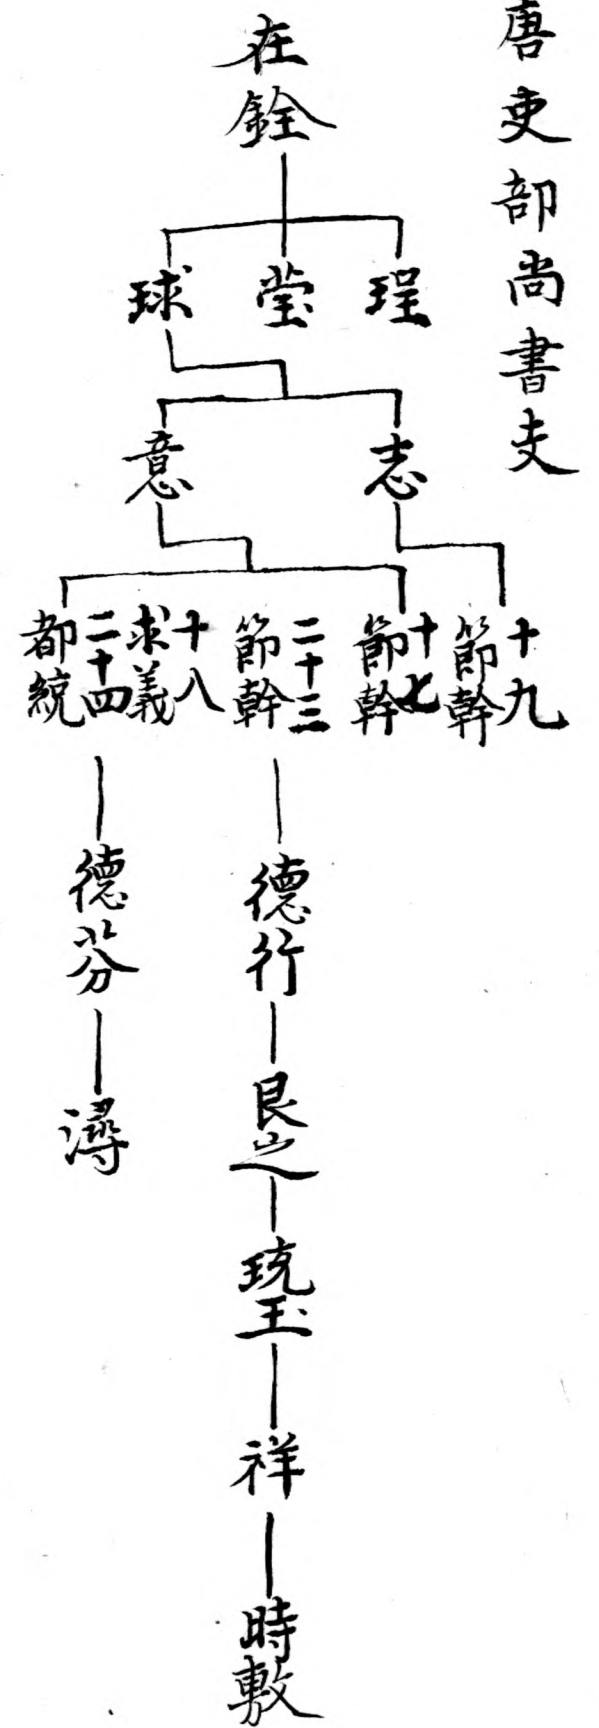 唐吏部尚書夫
在銓
珵
瑩
球
志
意
十九節幹
十七節幹
二十三節幹
十八求義
二十四都統
德行
艮之
珫玉
祥
時敷
德芬
潯